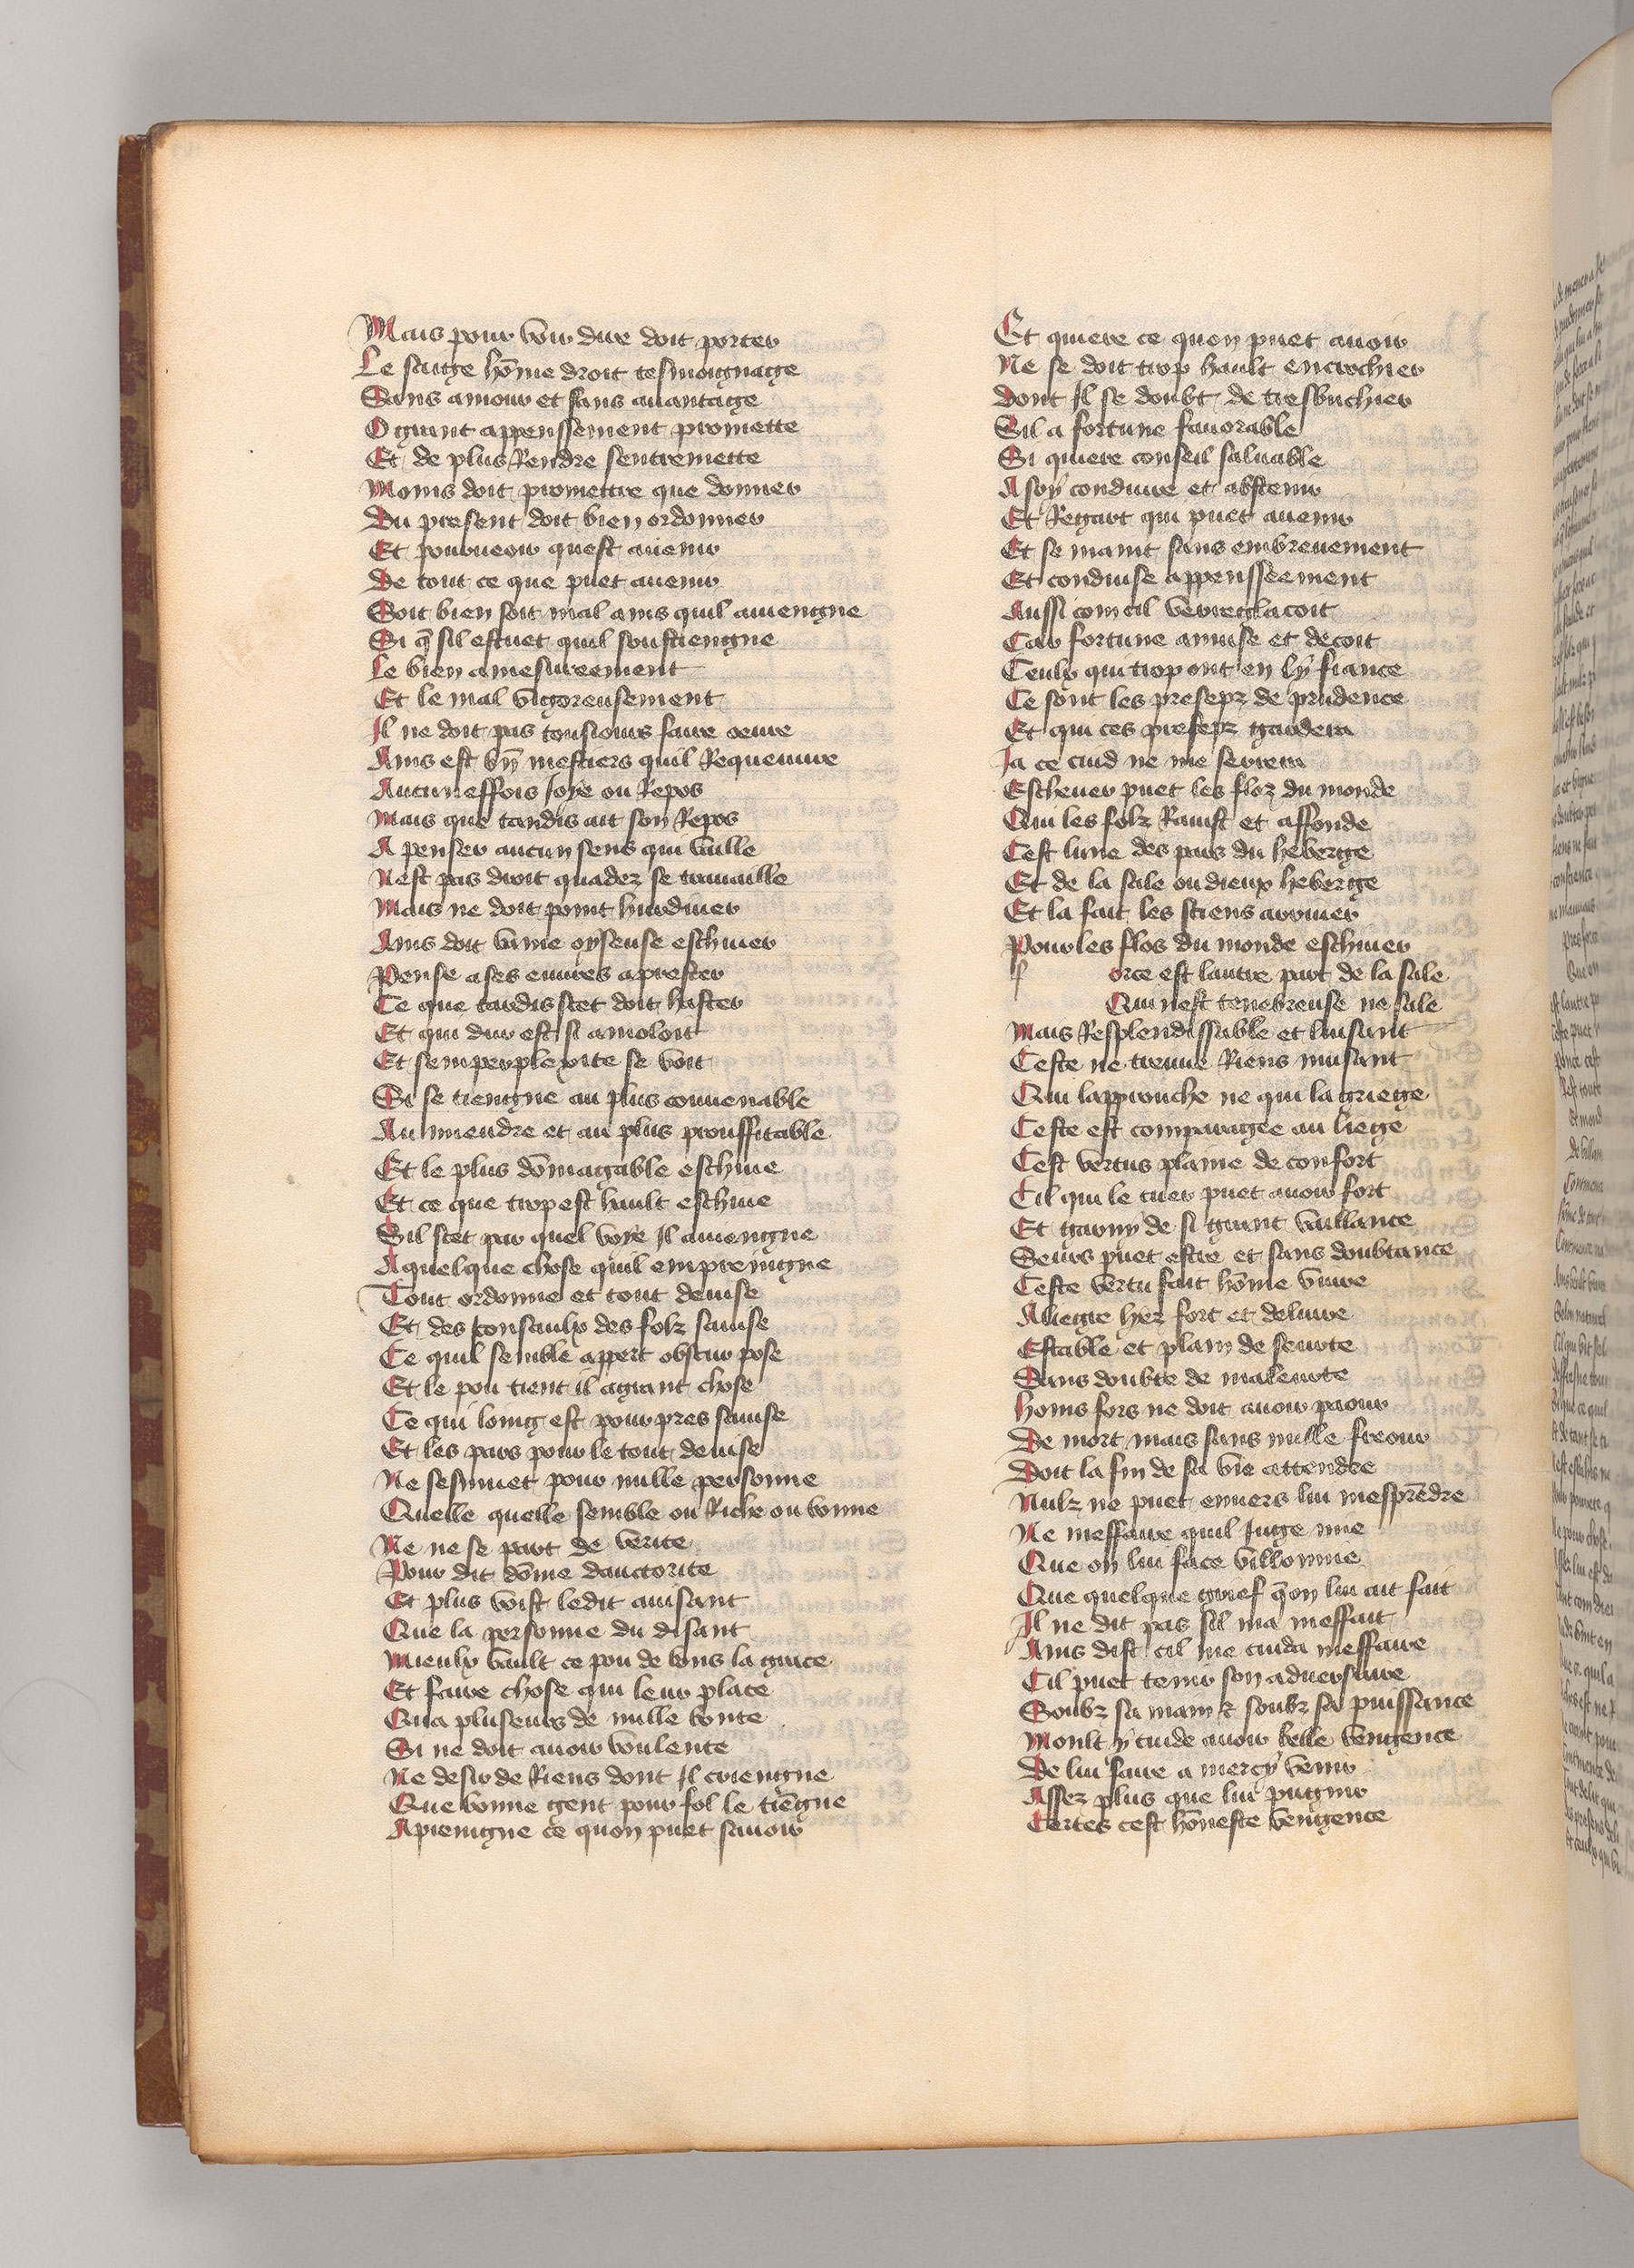 Mais pour voir dire doit porter
Le saige hōme droit tesmoignage
Sans amour et sans auantage
O grant appenssement promette
Et de plus Rendre sentremette
Moins doit promettre que donner
Du present doit bien ordonner
Et pourueoir quest auenir
De tout ce que puet auenir
Soit bien soit mal ains quil auiengne
Si q̄ sil estuet quil soustiengne
Le bien amesureement
Et le mal vigoreusement
Il ne doit pas tousiours faire oeure
Ains est vn mestiers quil Requeuure
Aucuneffois Joye ou Repos
Mais que tandis ait son Repos
A penser aucun sens qui vaille
Nest pas droit quadez se trauaille
Mais ne doit point hurdiner
Ains doit vaine oyseuse eschiuer
Pense a ses euures aprester
Ce que tardis scet doit haster
Et qui dur est si amoloit
Et sempeplexite se voit
Si se tiengne au plus conuenable
Au miendre et au plus prouffitable
Et le plus dōmagable eschiue
Et ce que trop est hault eschiue
Sil scet par quel voye Il auiengne
A quelque chose quil empreingne
Tout ordonne et tout deuise
Et des consaulx des folz sauise
Ce quil semble appert obscur pose
Et le pou tient il agrant chose
Ce qui loing est pour pres sauise
Et les pars pour le tout deuise
Ne sesmuet pour nulle personne
Quelle quelle semble ou Riche ou bonne
Ne ne se part de verite
Pour dit dōme dauctorite
Et plus voist ledit auisant
Que la personne du disant
Mieulx vault ce pou de bons la grace
Et faire chose qui leur place
Qua pluseurs de nulle bonte
Si ne doit auoir voulente
Ne desir de Riens dont Il criengne
Que bonne gent pour fol le tiēgne
Apreingne ce quon puet sauoir
Et quiere ce quon puet auoir
Ne se doit trop hault encrochier
Dont Il se doubt de tresbuchier
Sil a fortune fauorable
Si quiere conseil saluable
A soy conduire et abstenir
Et Regart qui puet auenir
Et se maint sans embreuement
Et conduise appensseement
Aussi com cil verreglacoit
Car fortune amuse et decoit
Ceulx qui trop ont en ly fiance
Ce sont les presepz de prudence
Et qui ces presepz gardera
Ja ce cuid ne me seurera
Escheuer puet les floz du monde
Qui les folz Rauist et affonde
Cest lune des pars du heberge
Et de la sale ou dieux heberge
Et la fait les sciens arriuer
Pour les flos du monde eschiuer
f orce est lautre part de la sale
Qui nest tenebreuse ne sale
Mais Resplendissable et luisant
Ceste ne treuue Riens nuisant
Qui lapprouche ne qui la griege
Ceste est comparagee au liege
Cest vertus plaine de confort
Cil qui le cuer puet auoir fort
Et garny de si grant vaillance
Seurs puet estre et sans doubtance
Ceste vertu fait hōme viure
Aliegre hez fort et deliure
Estable et plain de seurte
Sans doubte de maleurte
Homs fors ne doit auoir paour
De mort mais sans nulle freour
Doit la fin de sa vie attendre
Nulz ne puet enuers lui mesprēdre
Ne meffaire quil Juge mie
Que on lui face villonnie
Que quelque grief q̄on lui ait fait
Il ne dit pas sil ma meffait
Ains dist cil me cuida meffaire
Cil puet tenir son aduersaire
Soubz sa main & soubz sa puissance
Moult y cuide auoir belle vengence
De lui faire a mercy venir
Assez plus que lui pugnir
Certes cest hōneste vengence